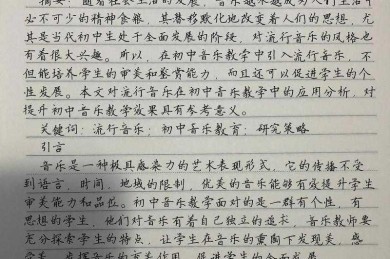 摘要：随着社会生活的发展，音乐越来越成为人们生活中
必不可少的精神食粮，其潜移默化地改变着人们的思想，尤
其是当代初中生处于全面发展的阶段，对流行音乐的风格也
有着很大兴趣。所以，在初中音乐教学中引入流行音乐，不
但能培养学生的审美和鉴赏能力，而且还可以促进学生的个
性发展。本文对流行音乐在初中音乐教学中的应用分析，对
提升初中音乐教学效果具有参考意义。
关键词：流行音乐；初中音乐教育；研究策略
引言
音乐是一种极具感染力的艺术表现形式，它的传播不受
到语言、时间、地域的限制，优美的音乐能够有效提升学生
审美能力和品位。初中音乐教学面对的是一群有个性，有
思想的学生，他们对音乐有着自己独立的追求，音乐教师要
充分探索学生的特点，让学生在音乐的熏陶下发现美，感
受美，发挥音乐的育美作用，促进学生的全面发展